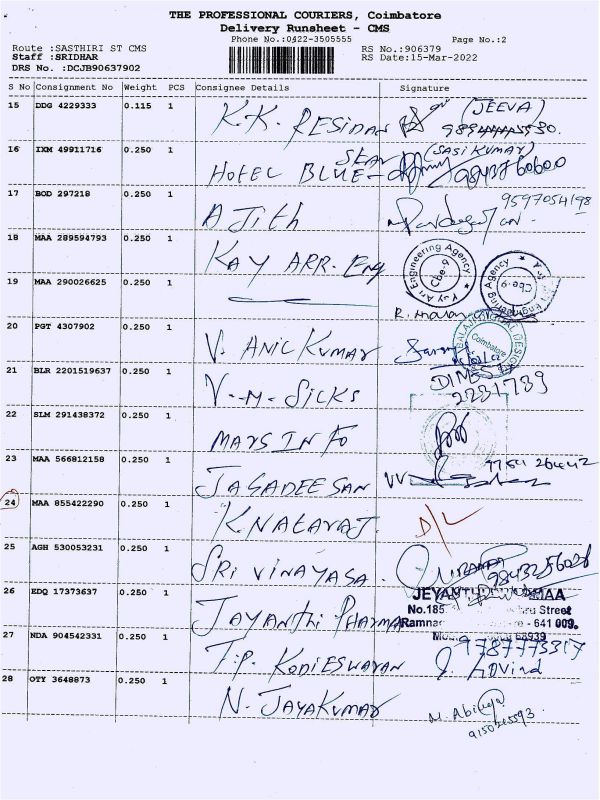 THE PROFESSIONAL COURIERS, Coimbatore
Delivery Runsheet - CMS
Phone No.:0422-3505555
Page No.:2
Route :SASTHIRI ST CMS
RS No.:906379
Staff :SRIDHAR
RS Date:15-Mar-2022
DRS No. :DCJB90637902
S No Consignment No Weight PCS Consignee Details Signature
15 DDG 4229333 0.115 1 K.K. RESIDAN (JEEVA)
16 IXM 49911716 0.250 1 HOTEL BLUE STAR (SASI KUMAR)
17 BOD 297218 0.250 1 AJith 9597054198
18 MAA 289594793 0.250 1 KAY ARR. Eng
Kay Arr Engineering Agency Cbe-9
19 MAA 290026625 0.250 1
20 PGT 4307902 0.250 1 V. ANIL KUMAR
Coimbatore
21 BLR 2201519637 0.250 1 V.M. SILKS
2231789
22 SLM 291438372 0.250 1 MARS INFO
23 MAA 566812158 0.250 1 JAGADEESAN
24 MAA 855422290 0.250 1 K NATARAJ. D/L
25 AGH 530053231 0.250 1 SRI VINAYAGA.
26 EDQ 17373637 0.250 1 JAYANTHI PHARMA
No.185 Street
Ramna - 641 009.
68939
27 NDA 904542331 0.250 1 T.P. KODIESWARAN 9787773317
J. Govind
28 OTY 3648873 0.250 1 N. JAYAKUMAR
M. Abinaya